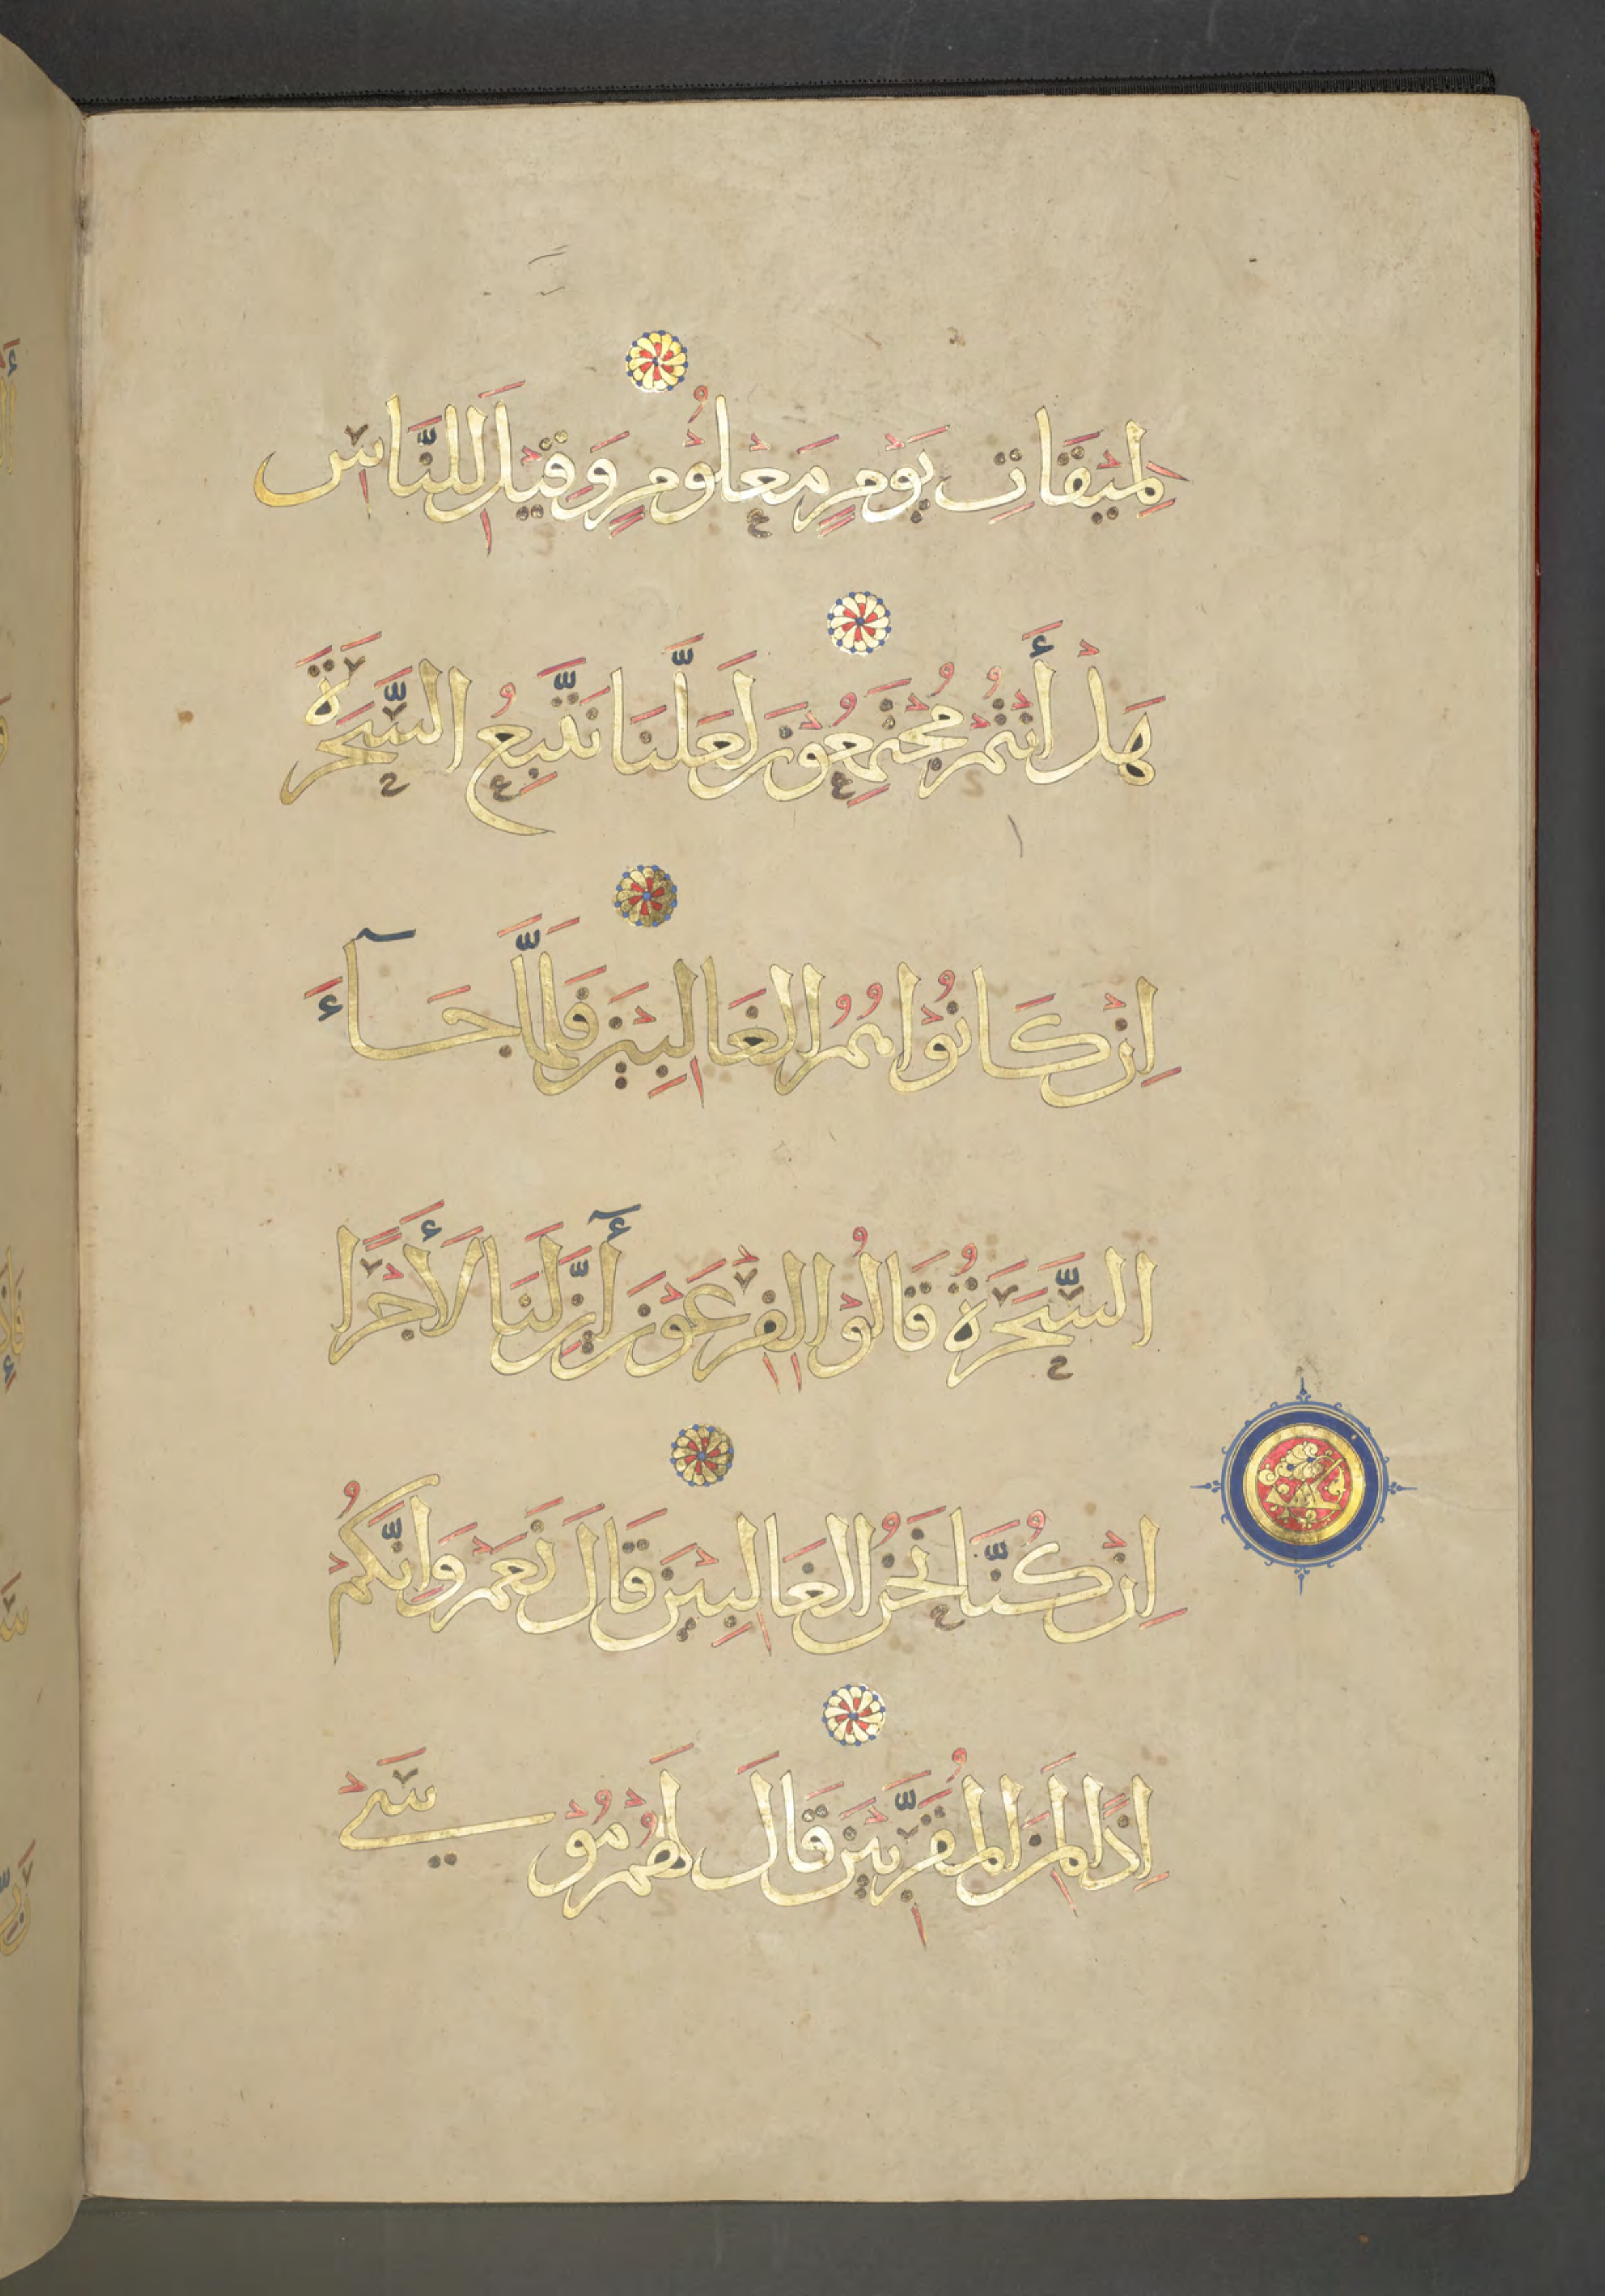 لِمِيْقَاتِ يَوْمٍ مَعْلُوْمٍ وَقِيْلَ لِلنَّاسِ
هَلْ أَنْتُمْ مُجْتَمِعُوْنَ لَعَلَّنَا نَتَّبِعُ السَّحَرَةَ
اِنْ كَانُوْا هُمُ الْغَالِبِيْنَ فَلَمَّا جَآءَ
السَّحَرَةُ قَالُوْا لِفِرْعَوْنَ أَئِنَّ لَنَا لَأَجْرًا
اِنْ كُنَّا نَحْنُ الْغَالِبِيْنَ قَالَ نَعَمْ وَاِنَّكُمْ
اِذًا لَمِنَ الْمُقَرَّبِيْنَ قَالَ لَهُمْ مُوْسَىْ